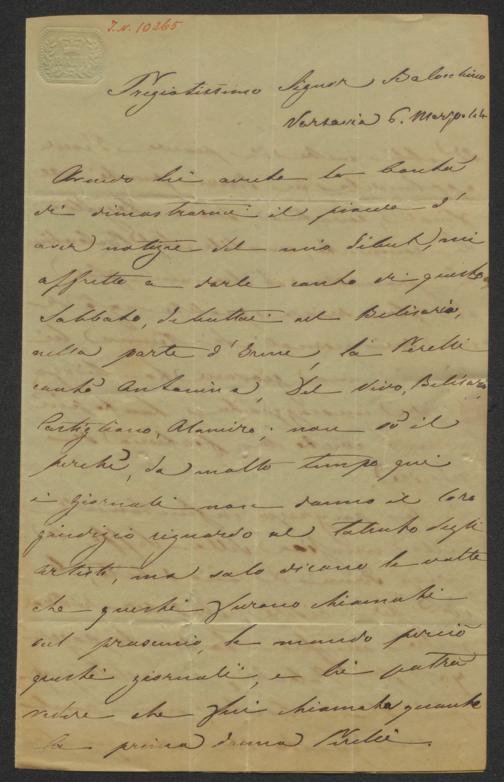 I.N. 10265
Pregiatissimo Signor Balochino
Varsavia 6. Marzo 44
Avendo Lei avuto la bontà
di dimostrarmi il piacere d'
aver notizie del mio debut, mi
affretto a darle conto di questo,
Sabbato, debuttai nel Belisario,
nella parte d'Irene, la
cantò Antonina, Del Vivo, Belisario
Castigliano, Alamiro; non sò il
perchè, da molto tempo qui
i giornali non danno il loro
giudizio riguardo al talento degli
artisti, ma solo dicono le volte
che questi furono chiamati
sul proscenio, le mando perciò
questi giornali, e Lei potrà
vedere che fui chiamata quanto
la prima donna